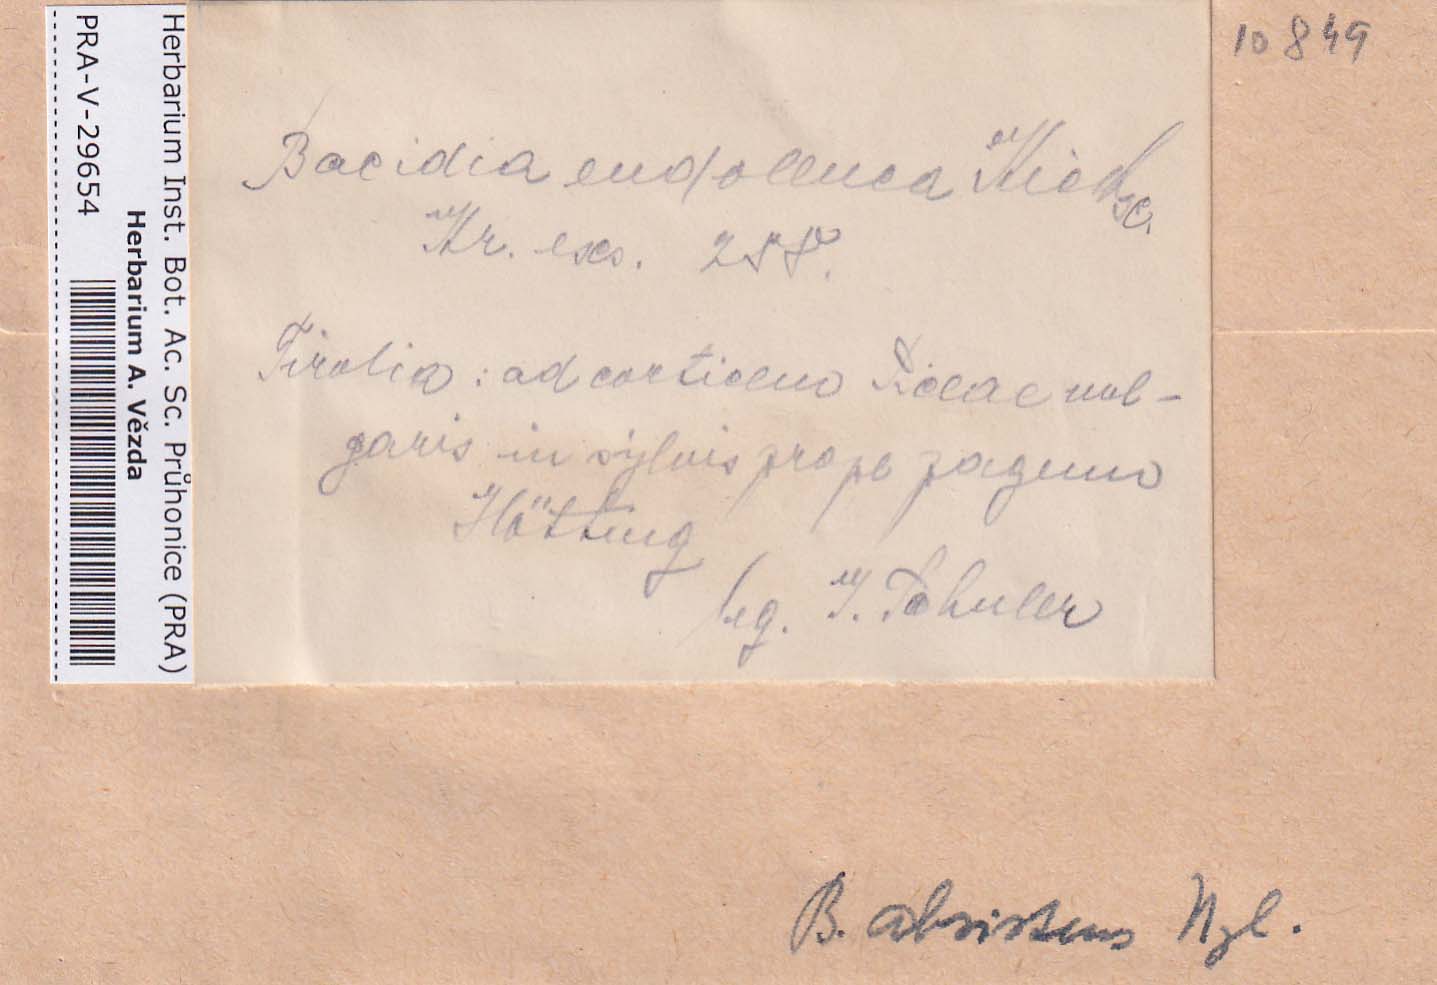 Herbarium Inst. Bot. Ac. Sc. Průhonice (PRA)
Herbarium A. Vězda
PRA-V-29654
10849
Bacidia endoleuca Kickx.
Kr. exs. 288.
Tirolia: ad corticem Piceae vul-
garis in sylvis prope pagum
Hötting
leg. J. Schuler
B. absistens Nyl.